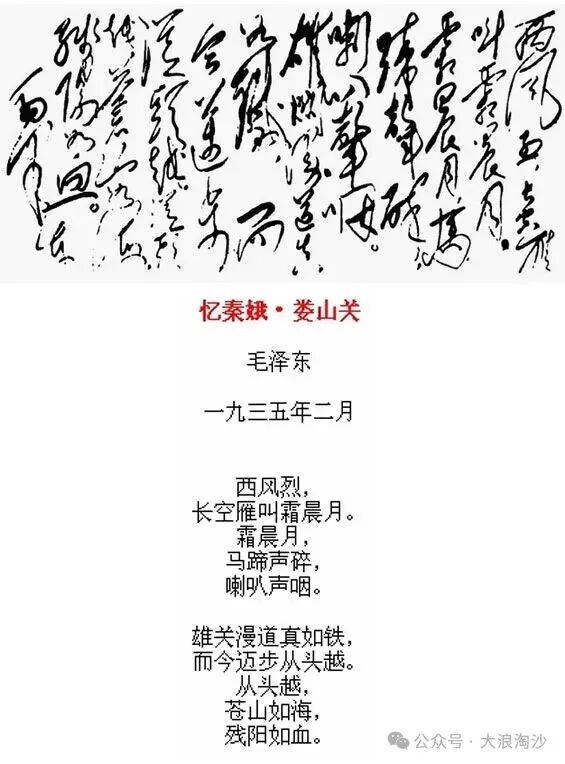 西风烈,长空雁
叫霜晨月。
霜晨月,馬
蹄聲碎,
喇叭聲咽。
雄關漫道真
如鐵,而
今邁步
從頭越。從頭
越,蒼山如海,
殘陽如血。
忆秦娥·娄山关
毛泽东
一九三五年二月
西风烈,
长空雁叫霜晨月。
霜晨月,
马蹄声碎,
喇叭声咽。
雄关漫道真如铁,
而今迈步从头越。
从头越,
苍山如海,
残阳如血。
公众号·大浪淘沙